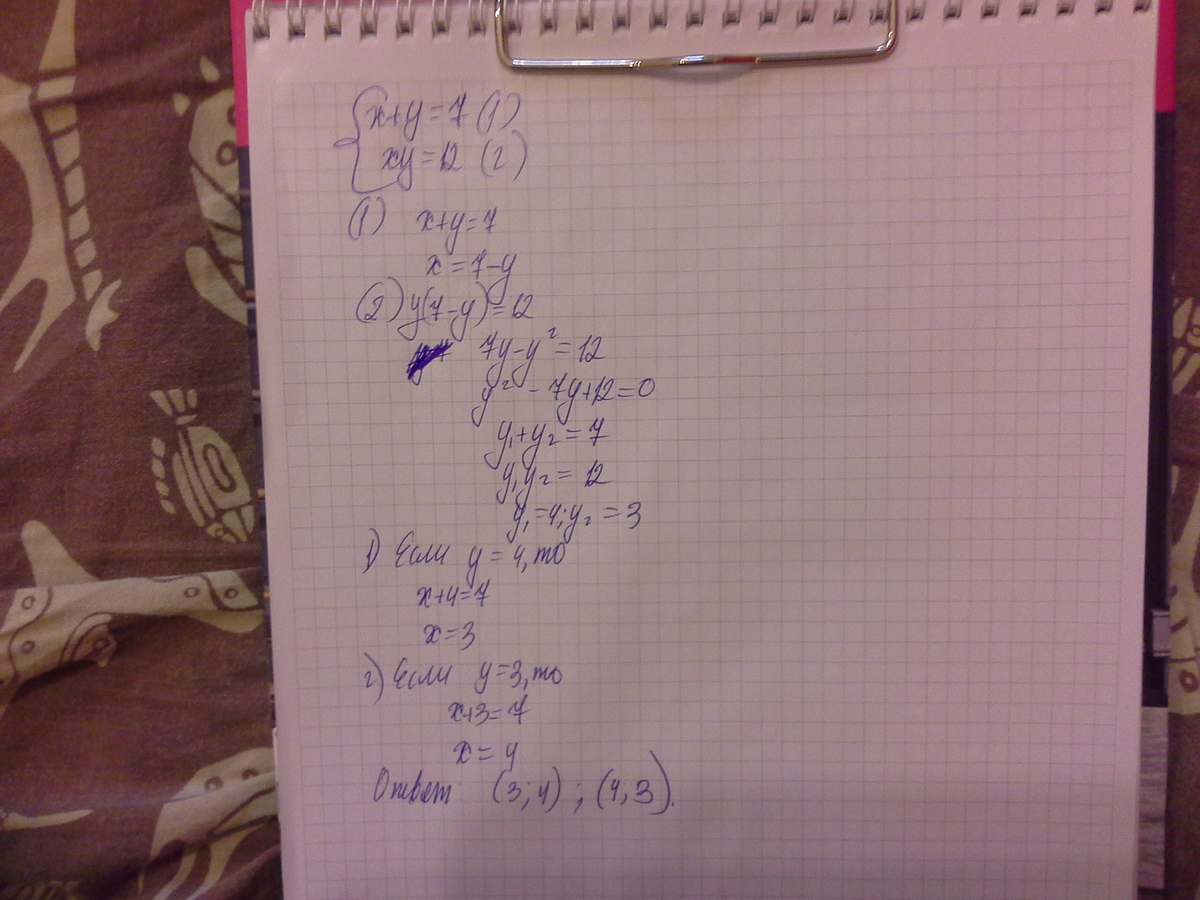 x+y=7 (1)
xy=12 (2)
(1) x+y=7
x=7-y
(2) y(7-y)=12
7y-y²=12
y²-7y+12=0
y₁+y₂=7
y₁y₂=12
y₁=4; y₂=3
1) Если y=4, то
x+4=7
x=3
2) Если y=3, то
x+3=7
x=4
Ответ (3;4); (4,3).